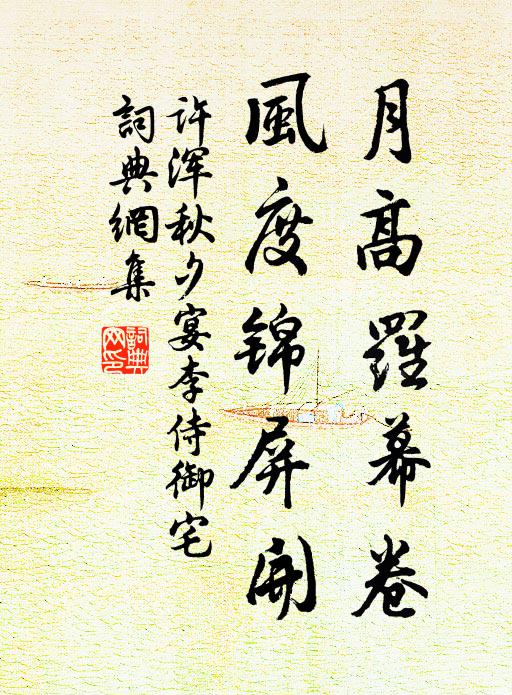 月高羅幕卷
風度锦屏開
许浑秋夕宴李侍御宅
詞典網集
詞典网印